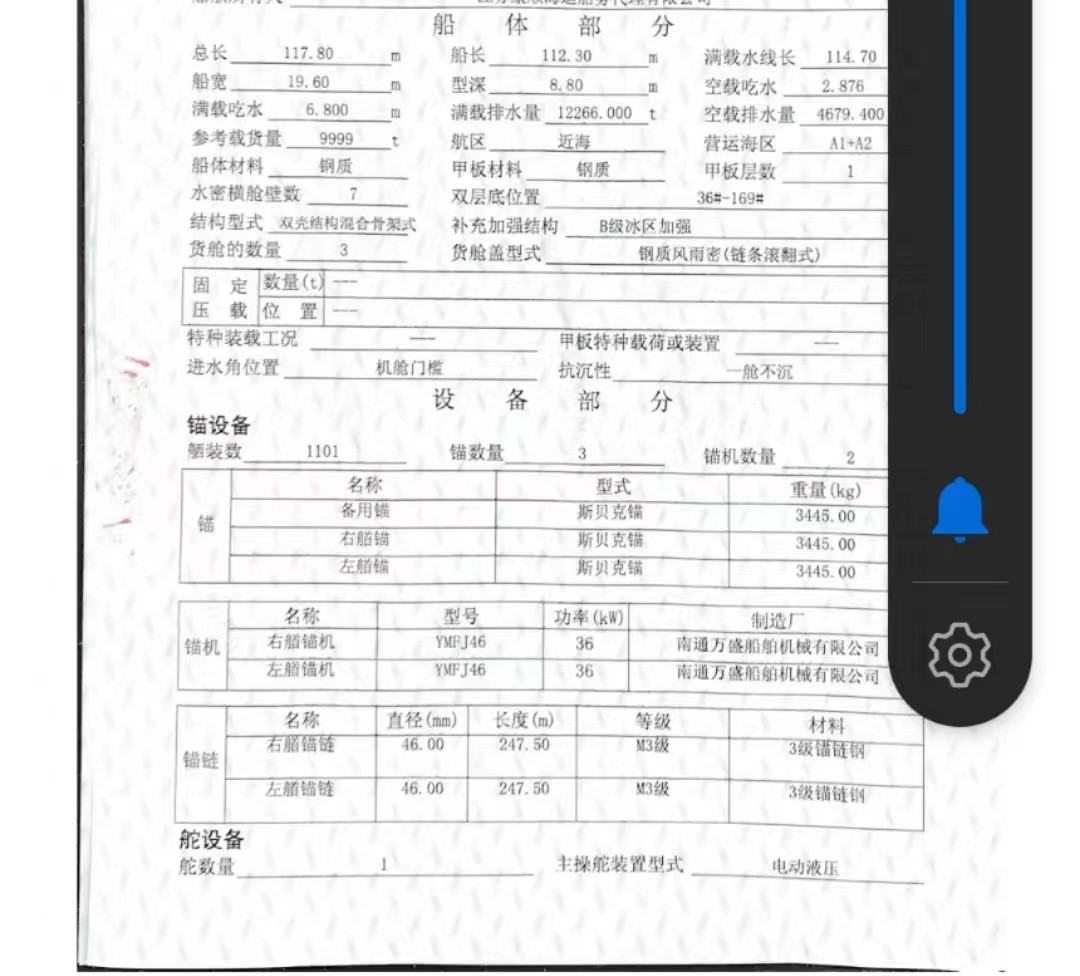 船体部分
总长 117.80 m 船长 112.30 m 满载水线长 114.70
船宽 19.60 m 型深 8.80 m 空载吃水 2.876
满载吃水 6.800 m 满载排水量 12266.000 t 空载排水量 4679.400
参考载货量 9999 t 航区 近海 营运海区 A1+A2
船体材料 钢质 甲板材料 钢质 甲板层数 1
水密横舱壁数 7 双层底位置 36#-169#
结构型式 双壳结构混合骨架式 补充加强结构 B级冰区加强
货舱的数量 3 货舱盖型式 钢质风雨密(链条滚翻式)
固定 数量(t) ---
压载 位置 ---
特种装载工况 --- 甲板特种载荷或装置 ---
进水角位置 机舱门槛 抗沉性 一舱不沉
设备部分
锚设备
舾装数 1101 锚数量 3 锚机数量 2
名称 型式 重量(kg)
备用锚 斯贝克锚 3445.00
锚 右艏锚 斯贝克锚 3445.00
左艏锚 斯贝克锚 3445.00
名称 型号 功率(kW) 制造厂
锚机 右艏锚机 YMFJ46 36 南通万盛船舶机械有限公司
左艏锚机 YMFJ46 36 南通万盛船舶机械有限公司
名称 直径(mm) 长度(m) 等级 材料
右艏锚链 46.00 247.50 M3级 3级锚链钢
锚链
左艏锚链 46.00 247.50 M3级 3级锚链钢
舵设备
舵数量 1 主操舵装置型式 电动液压